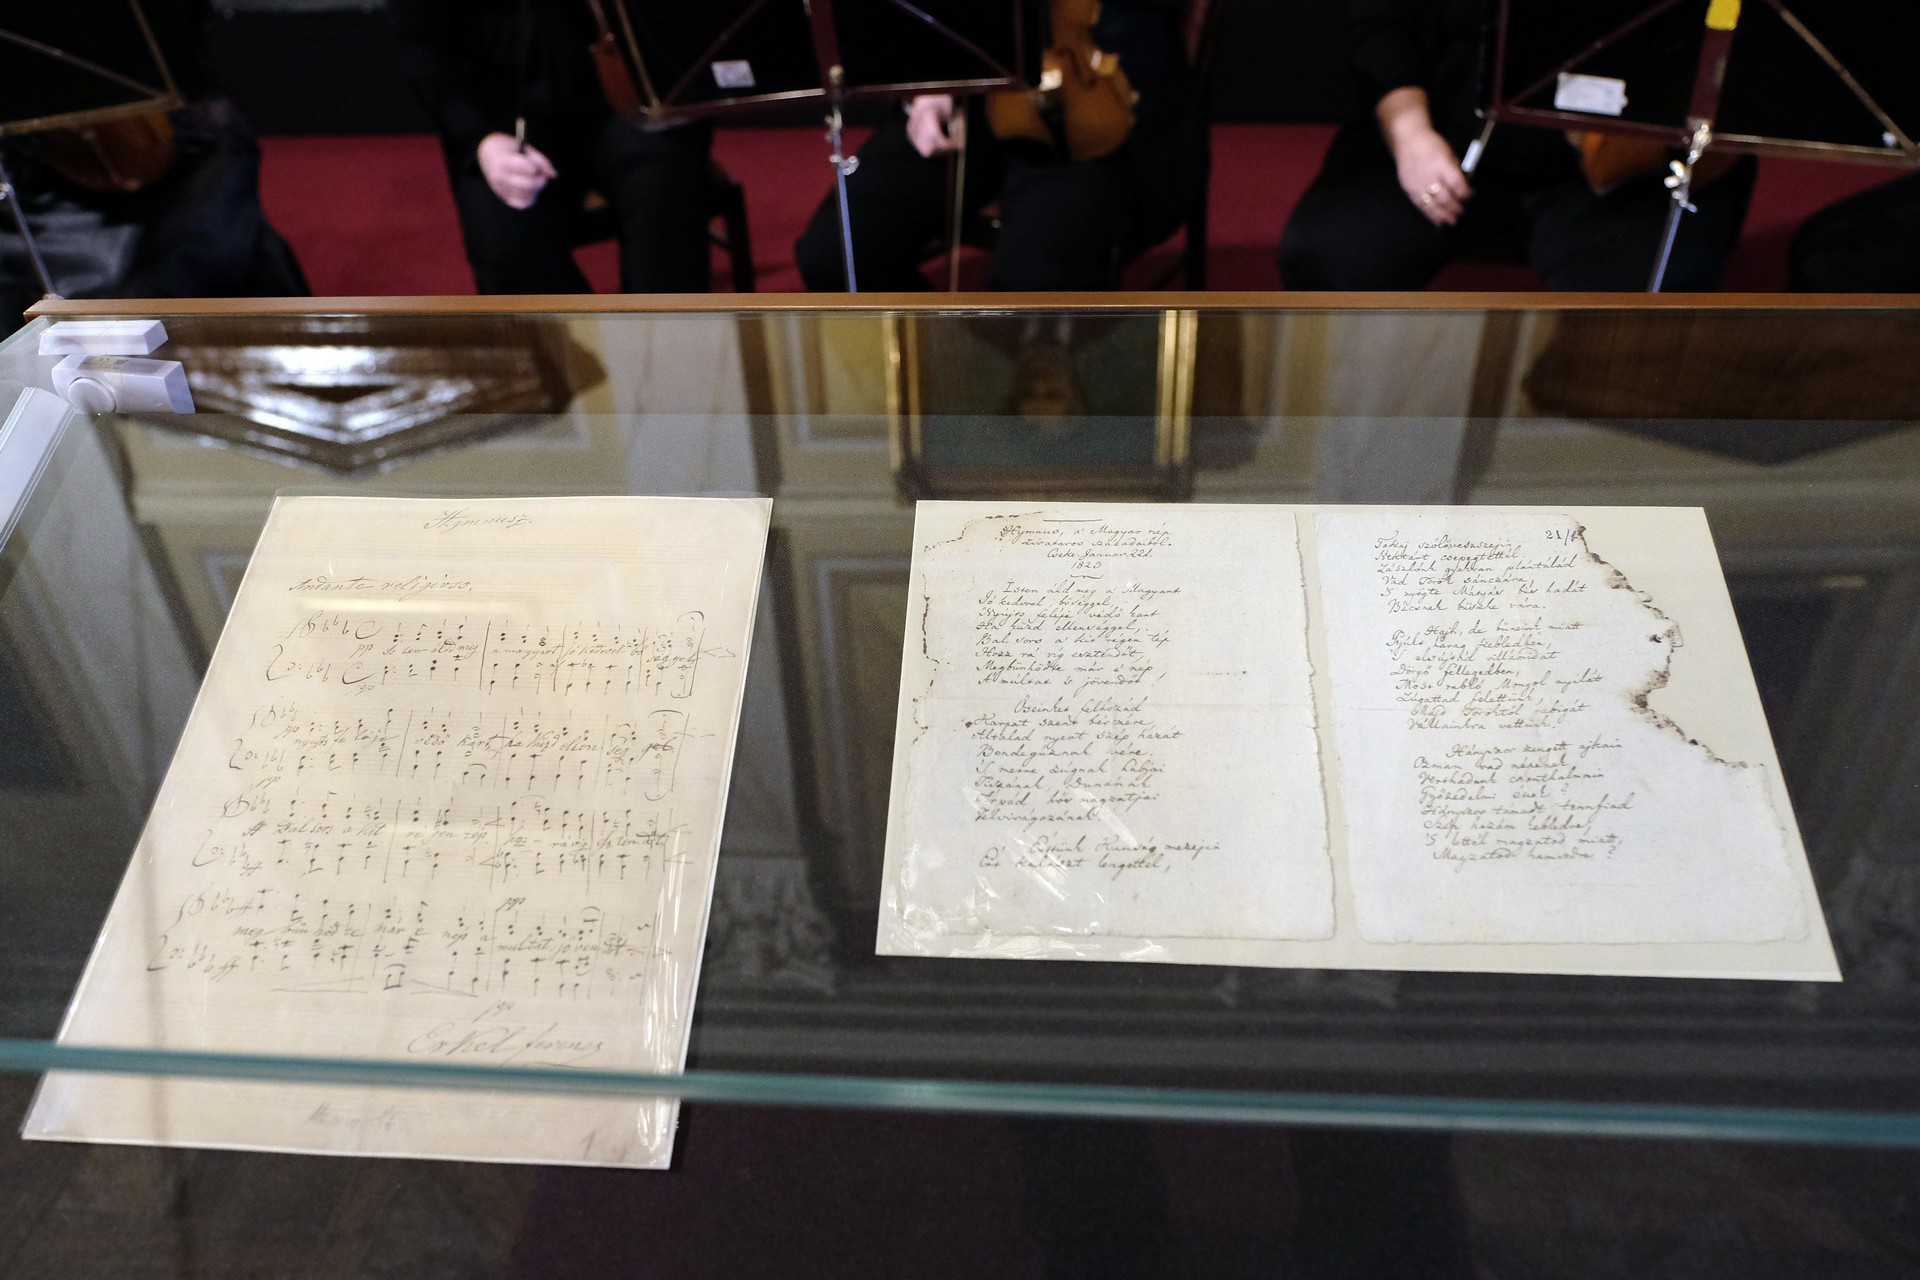 Hymnusz.
Andante religioso.
pp Is ten áld meg a magyart jó kedvvel bő seggel
nyujts fe léje védő kart ha küzd ellen seg gel
Bal sors a kit ré gen tép hoz rá víg esz tendőt
meg bűn höd te már e nép a multat jövendőt
ppp
Erkel Ferencz
Hymnus, a' Magyar nép
zivataros századaiból.
Cseke. Januar. 22d.
1823
Isten áld meg a' Magyart
Jó kedvvel, bőséggel,
Nyujts feléje védő kart
Ha küzd ellenséggel,
Bal sors a' kit régen tép
Hozz rá víg esztendőt,
Megbűnhődte már e' nép
A' múltat 's jövendőt!
Őseinket felhozád
Kárpát szent bérczére,
Általad nyert szép hazát
Bendegúznak vére.
'S merre zúgnak habjai
Tiszának, Dunának
Árpád hős magzatjai
Felvirágozának.
Értünk Kunság mezején
Ért kalászt lengettél,
21/
Tokaj szőlővesszején
Nektárt csepegtettél.
Zászlónk gyakran plántálád
Vad Török sánczára,
'S nyögte Mátyás bús hadát
Bécsnek büszke vára.
Hajh, de bűneink miatt
Gyúlt harag kebledben,
'S elsújtád villámidat
Dörgő fellegedben,
Most rabló Mongol nyilát
Zúgattad felettünk,
Majd Töröktől rabigát
Vállainkra vettünk.
Hányszor zengett ajkain
Ozman vad népének
Vert hadunk csonthalmain
Győzedelmi ének?
Hányszor támadt tennfiad
Szép hazám kebledre,
'S lettél magzatod miatt,
Magzatod hamvedre?